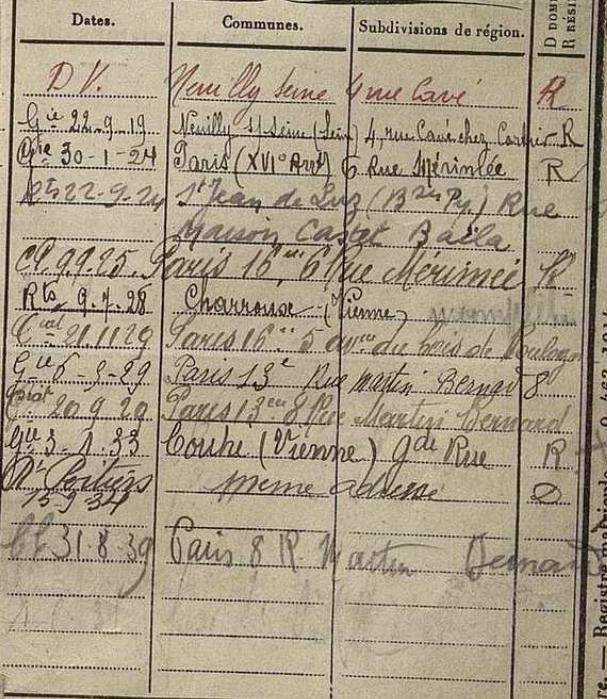 Dates. Communes. Subdivisions de région. D DOMI R RÉSI
D.V. Neuilly Seine 4 rue Cavé R
Gie 22-9-19 Neuilly s/ Seine (Seine) 4, rue Cavé chez R
30-1-24 Paris (XVI° Arrt) 6 Rue Mérimée R
22-9-24 St Jean de Luz (Bses Py.) Rue
Maison Castet Baïla
9.9.25. Paris 16e 6 Rue Mérimée R
Rts 9-7-28 Charroux (Vienne)
21.11.29 Paris 16e 5 du bois de Boulogn
Gie 6-3-29 Paris 13e Rue Martin Bernard 8
20 9 29 Paris 13e 8 Rue Martin Bernard
Gie 3-1-33 Couhé (Vienne) Gde Rue R
Poitiers même adresse D
15-9-34
31-8-39 Paris 8 R. Martin Bernard
Registre